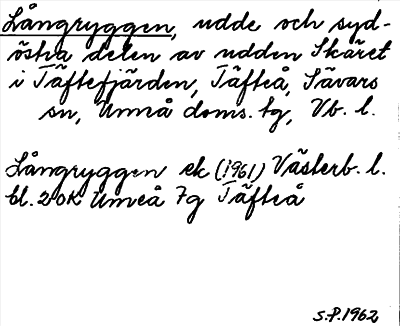 Långryggen, udde och syd-
östra delen av udden Skäret
i Täftefjärden, Täfteå, Sävars
sn, Umeå doms. tg, Vb. l.
Långryggen ek (1961) Västerb. l.
bl. 20K Umeå 7g Täfteå
S.P. 1962